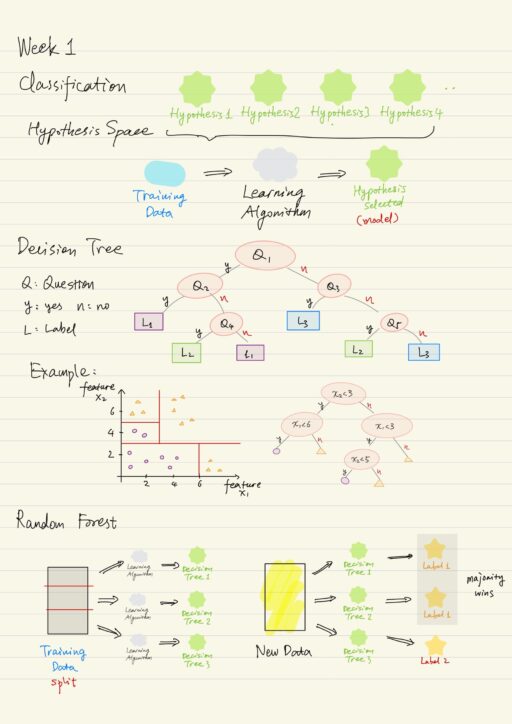 Week 1
Classification
Hypothesis 1 Hypothesis2 Hypothesis3 Hypothesis4 ..
Hypothesis Space
Training Data
Learning Algorithm
Hypothesis selected
(model)
Decision Tree
Q: Question
y: yes n: no
L: Label
Q1
y n
Q2 Q3
y n y n
L1 Q4 L3 Q5
y n y n
L2 L1 L2 L3
Example:
feature
x2
6
4
2
2 4 6
feature
x1
x2<3
y n
x1<6 x1<3
y n y n
x2<5
y n
Random Forest
Learning Algorithm
Decision Tree 1
Learning Algorithm
Decision Tree 2
Learning Algorithm
Decision Tree 3
Training
Data
split
New Data
Decision Tree 1
Label 1
Decision Tree 2
Label 1
Decision Tree 3
Label 2
majority
wins